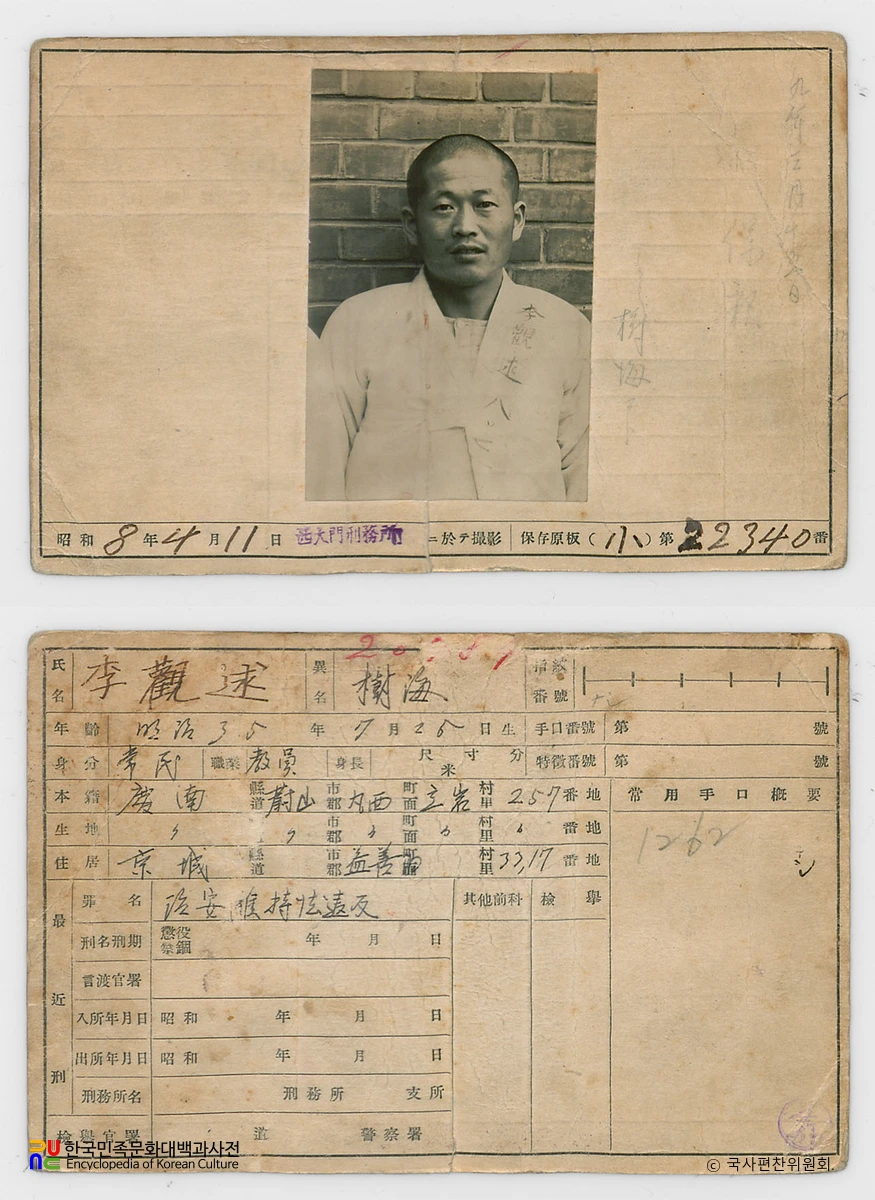 李觀述
樹海
昭和 8年 4月 11日 西大門刑務所 ニ於テ撮影 保存原板(小)第 22340 番
氏名 李觀述 異名 樹海 指紋番號
年齡 明治35年7月25日生 手口番號 第 號
身分 常民 職業 敎員 身長 尺 寸 分 米 特徵番號 第 號
本籍 慶南 縣道 蔚山 市郡 凡西 町面 立岩 村里 257 番地 常用手口槪要
生地 〃 縣道 〃 市郡 〃 町面 〃 村里 〃 番地 1262
住居 京城 縣道 市郡 益善 町面 村里 33,17 番地
最近刑
罪名 治安維持法違反 其他前科 檢擧
刑名刑期 懲役 禁錮 年 月 日
言渡官署
入所年月日 昭和 年 月 日
出所年月日 昭和 年 月 日
刑務所名 刑務所 支所
檢擧官署 道 警察署
한국민족문화대백과사전
Encyclopedia of Korean Culture
© 국사편찬위원회